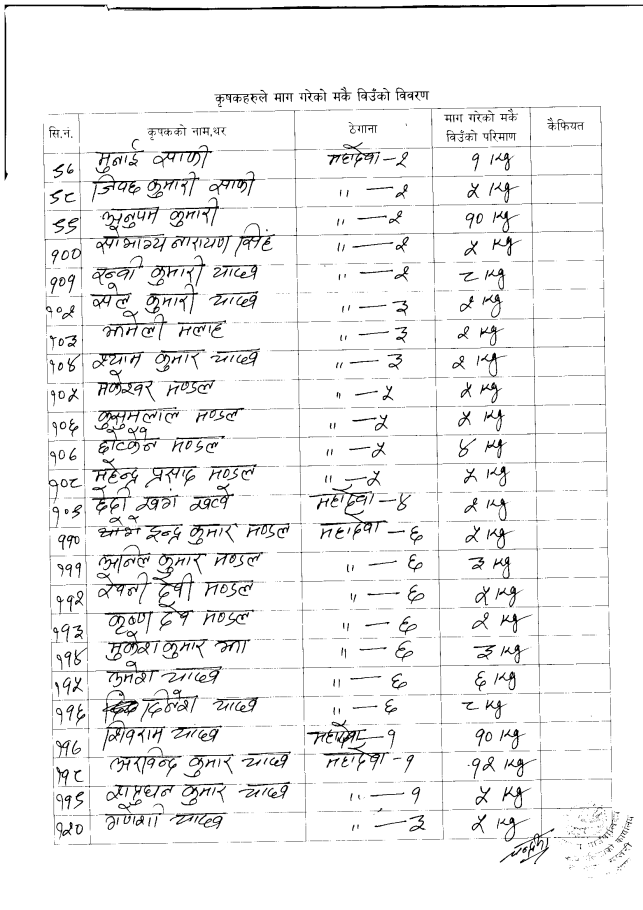 कृषकहरुले माग गरेको मकै विउँको विवरण
सि.नं. कृषकको नाम,थर ठेगाना माग गरेको मकै विउँको परिमाण कैफियत
९७ मुनाई साफी महादेवा -२ १ kg
९८ जिवछ कुमारी साफी " -२ ५ kg
९९ अनुपम कुमारी " -२ १० kg
१०० सोभाग्य नारायण सिंह " -२ ५ kg
१०१ कुमारी यादव " -२ ८ kg
१०२ सेलु कुमारी यादव " -३ २ kg
१०३ झामेली मलाह " -३ २ kg
१०४ श्याम कुमार यादव " -३ २ kg
१०५ मकेश्वर मण्डल " -५ ५ kg
१०६ कुसुमलाल मण्डल " -५ ५ kg
१०७ छोटकेन मण्डल " -५ ४ kg
१०८ महेन्द्र प्रसाद मण्डल " -५ ५ kg
१०९ देदी खंग खत्वे महादेवा -४ २ kg
११० इन्द्र कुमार मण्डल महादेवा -६ ५ kg
१११ अनिल कुमार मण्डल " -६ ३ kg
११२ रेवनी देवी मण्डल " -६ ५ kg
११३ कृष्ण देव मण्डल " -६ २ kg
११४ मुकेश कुमार झा " -६ ३ kg
११५ उमेश यादव " -६ ६ kg
११६ दिनेश यादव " -६ ८ kg
११७ शिवराम यादव महादेवा -१ १० kg
११८ अरविन्द कुमार यादव महादेवा -१ १२ kg
११९ कुमार यादव " -१ ५ kg
१२० गणेशी यादव " -३ ५ kg